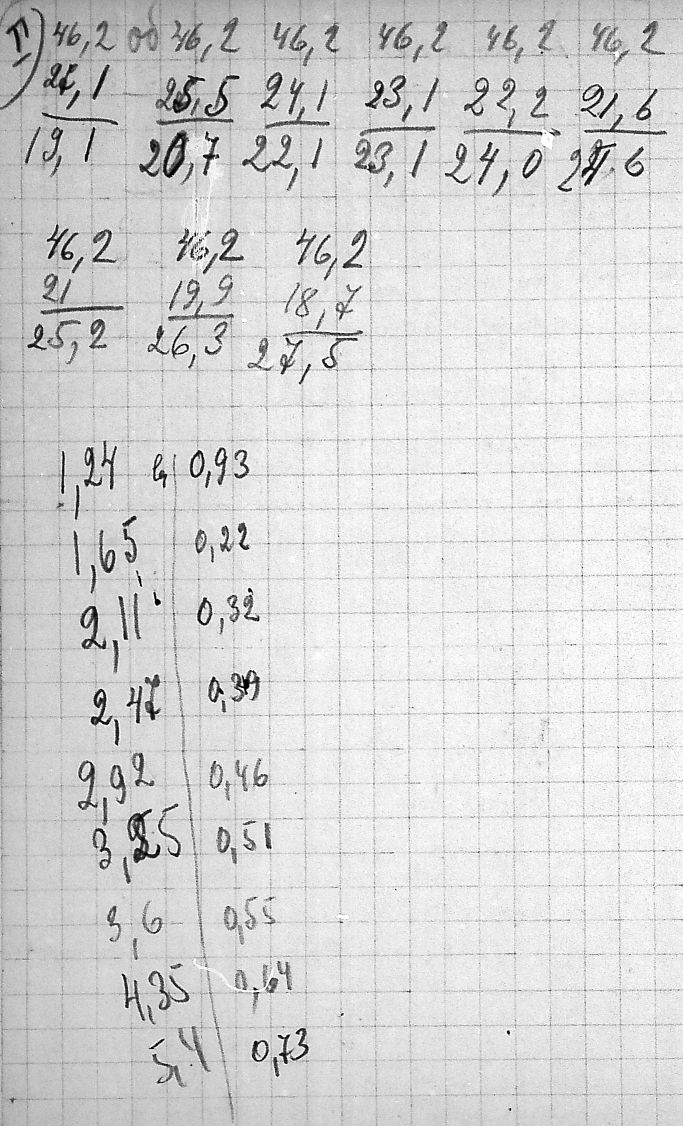 I) 46,2 об 46,2 46,2 46,2 46,2 46,2
27,1 25,5 24,1 23,1 22,2 21,6
19,1 20,7 22,1 23,1 24,0 24.6
46,2 46,2 46,2
21 19,9 18,7
25,2 26,3 27,5
1,24 0,93
1,65 0,22
2,11 0,32
2,47 0,39
2,92 0,46
3,25 0,51
3,6 0,55
4,35 0,64
5,4 0,73